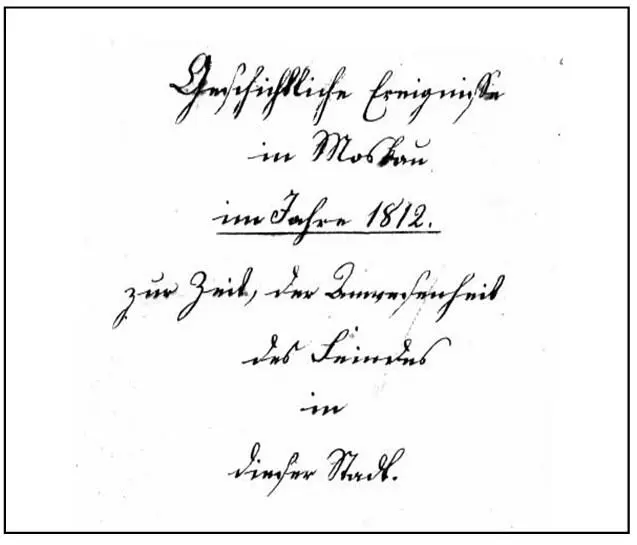 Geschichtliche Ereignisse
in Moskau
im Jahre 1812.
zur Zeit, der Anwesenheit
des Feindes
in
dieser Stadt.